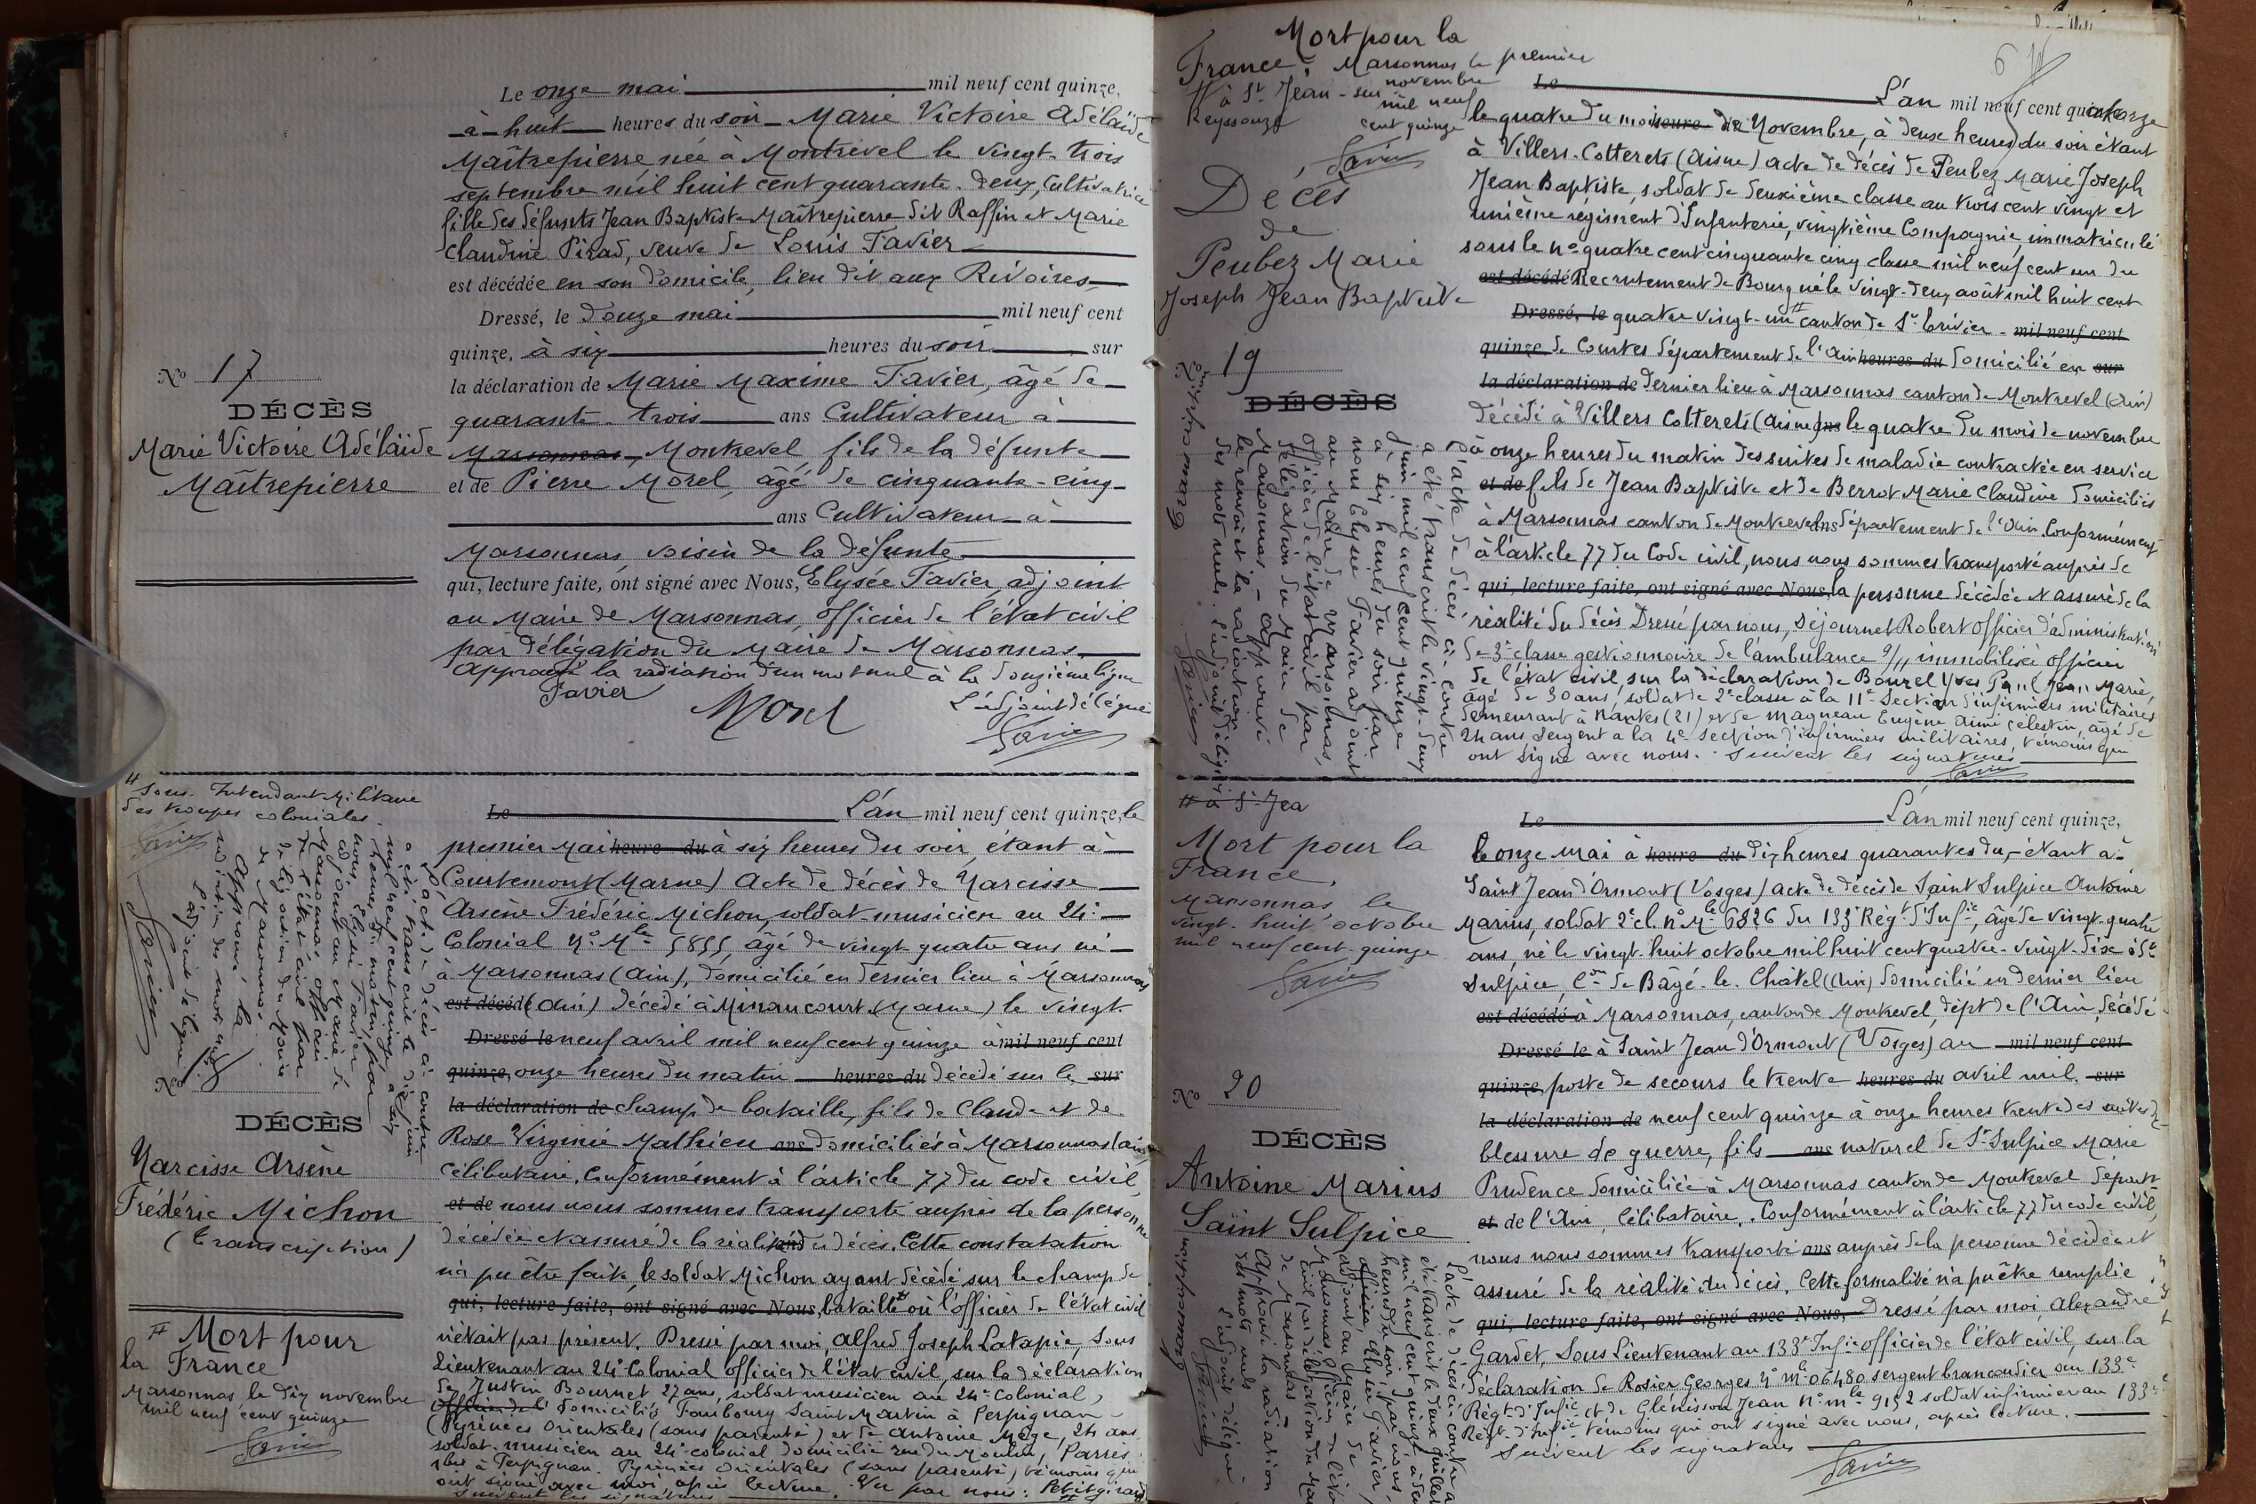 Le onze mai mil neuf cent quinze,
à huit heures du soir Marie Victoire Adélaïde
Maîtrepierre née à Montrevel le vingt-trois
septembre mil huit cent quarante-deux, Cultivatrice
fille des défunts Jean Baptiste Maîtrepierre dit Raffin et Marie
Claudine Pirad, veuve de Louis Favier
est décédée en son domicile, lieu dit aux Rivoires
Dressé, le douze mai mil neuf cent
quinze, à six heures du soir sur
la déclaration de Marie Maxime Favier, âgé de
quarante-trois ans Cultivateur à
Marsonnas, Montrevel fils de la défunte
et de Pierre Morel, âgé de cinquante-cinq
ans Cultivateur à
Marsonnas, voisin de la défunte
qui, lecture faite, ont signé avec Nous, Elysée Favier, adjoint
au Maire de Marsonnas, officier de l'état civil
par délégation du Maire de Marsonnas
Approuvé la radiation d'un mot nul à la douzième ligne
Favier Morel L'adjoint délégué
Favier
No 17
DÉCÈS
Marie Victoire Adélaïde
Maîtrepierre
Sous-Intendant Militaire
des troupes coloniales.
Favier
Le L'an mil neuf cent quinze, le
premier mai heure du à six heures du soir, étant à
Courtemont (Marne) Acte de décès de Narcisse
Arsène Frédéric Michon, soldat musicien au 24e
Colonial No Mle 5855, âgé de vingt quatre ans né
à Marsonnas (Ain), domicilié en dernier lieu à Marsonnas
est décédé (Ain) décédé à Minaucourt (Marne) le vingt-
Dressé le neuf avril mil neuf cent quinze à mil neuf cent
quinze, onze heures du matin heures du décédé sur le sur
la déclaration de champ de bataille, fils de Claude et de
Rose Virginie Mathieu ans domiciliés à Marsonnas (Ain)
Célibataire. Conformément à l'article 77 du code civil,
et de nous nous sommes transporté auprès de la personne
décédée et assuré de la réalité du décès. Cette constatation
n'a pu être faite, le soldat Michon ayant décédé sur le champ de
qui, lecture faite, ont signé avec Nous, bataille où l'officier de l'état civil
n'était pas présent. Dressé par moi, Alfred Joseph Latapie, Sous
Lieutenant au 24e Colonial officier de l'état civil, sur la déclaration
de Justin Bournet 27 ans, soldat musicien au 24e Colonial,
domicilié Faubourg Saint Martin à Perpignan
(Pyrénées Orientales (sans parenté) et de Antoine Mège, 24 ans
soldat musicien au 24e colonial domicilié rue du Moulin,
à Perpignan. Pyrénées Orientales (sans parenté) témoins qui
ont signé avec moi, après lecture. Vu par nous: Petitgirard
Suivent les signatures
L'acte de décès ci-contre
a été transcrit le dix juin
mil neuf cent quinze, à six
heures du matin, par
nous, Elysée Favier
adjoint au Maire de
Marsonnas, officier
de l'état civil par
délégation du Maire
de Marsonnas.
Approuvé la
radiation des mots nuls
L'adjoint délégué
Favier
No 18
DÉCÈS
Narcisse Arsène
Frédéric Michon
(Transcription)
Mort pour
la France
Marsonnas le dix novembre
mil neuf cent quinze
Favier
Mort pour la
France. Marsonnas le premier
novembre
mil neuf
cent quinze
à St Jean-sur
Reyssouze
Favier
Décès
de
Peubez Marie
Joseph Jean Baptiste
No 19
DÉCÈS
Le L'an mil neuf cent quatorze
le quatre du mois heure du de Novembre, à deux heures du soir étant
à Villers-Cotterets (Aisne) acte de décès de Peubez Marie Joseph
Jean Baptiste, soldat de deuxième classe au trois cent vingt et
unième régiment d'Infanterie, vingtième Compagnie, immatriculé
sous le no quatre cent cinquante cinq classe mil neuf cent un du
est décédé Recrutement de Bourg né le vingt-deux août mil huit cent
Dressé, le quatre vingt-un canton de St Trivier mil neuf cent
quinze de Courtes département de l'Ain heures du domicilié en sur
la déclaration de dernier lieu à Marsonnas canton de Montrevel (Ain)
décédé à Villers Cotterets (Aisne) ans le quatre du mois de novembre
à onze heures du matin des suites de maladie contractée en service
et de fils de Jean Baptiste et de Berrot Marie Claudine domiciliés
à Marsonnas canton de Montrevel ans département de l'Ain. Conformément
à l'article 77 du Code civil, nous nous sommes transporté auprès de
qui, lecture faite, ont signé avec Nous, la personne décédée et assuré de la
réalité du décès Dressé par nous, Séjournet Robert officier d'administration
de 3e classe gestionnaire de l'ambulance 9/11 immobilisée officier
de l'état civil, sur la déclaration de Bourel Yves Paul Jean Marie,
âgé de 30 ans, soldat de 2e classe à la 11e Section d'infirmiers militaires
demeurant à Nantes (21) et de Magneau Eugène Aimé Célestin, âgé de
24 ans Sergent à la 4e section d'infirmiers militaires, témoins qui
ont signé avec nous. Suivent les signatures
Favier
L'acte de décès ci-contre
a été transcrit le vingt-deux
juin mil neuf cent quinze
à six heures du soir par
nous Elysée Favier adjoint
au Maire de Marsonnas,
officier de l'état civil par
délégation du Maire de
Marsonnas. Approuvé
le renvoi et la radiation
des mots nuls. L'adjoint délégué
Favier
à St Jea
Mort pour la
France.
Marsonnas le
vingt-huit octobre
mil neuf cent quinze
Favier
Le L'an mil neuf cent quinze,
le onze mai à heure du dix heures quarante du, étant à
Saint Jean d'Ormont (Vosges) acte de décès de Saint Sulpice Antoine
Marius, soldat 2e cl. no Mle 6826 du 133e Régt d'Infie, âgé de vingt-quatre
ans, né le vingt-huit octobre mil huit cent quatre-vingt-dix à St
Sulpice, Con de Bâgé-le-Chatel (Ain) domicilié en dernier lieu
est décédé à Marsonnas, canton de Montrevel, dépt de l'Ain, décédé
Dressé le à Saint Jean d'Ormont (Vosges) au mil neuf cent
quinze, poste de secours le trente heures du avril mil sur
la déclaration de neuf cent quinze à onze heures trente des suites de
blessure de guerre, fils ans naturel de St Sulpice Marie
Prudence domiciliée à Marsonnas canton de Montrevel départt
et de l'Ain, Célibataire. Conformément à l'article 77 du code civil,
nous nous sommes transporté ans auprès de la personne décédée et
assuré de la réalité du décès. Cette formalité n'a pu être remplie
qui, lecture faite, ont signé avec Nous, Dressé par moi, Alexandre
Gardet, Sous Lieutenant au 133e Infie officier de l'état civil, sur la
déclaration de Rosier Georges No Mle 06480 sergent brancardier au 133e
Régt d'Infie et de Glénisson Jean No Mle 9152 soldat infirmier au 133e
Régt d'Infie témoins qui ont signé avec nous, après lecture.
Suivent les signatures
Favier
No 20
DÉCÈS
Antoine Marius
Saint Sulpice
L'acte de décès ci-contre a
été transcrit le deux juillet
mil neuf cent quinze, à
heures du soir, par nous
Elysée Favier,
adjoint au Maire de
Marsonnas, officier de l'état
civil par délégation du Maire
de Marsonnas
Approuvé la radiation
des mots nuls
L'adjoint délégué
Favier